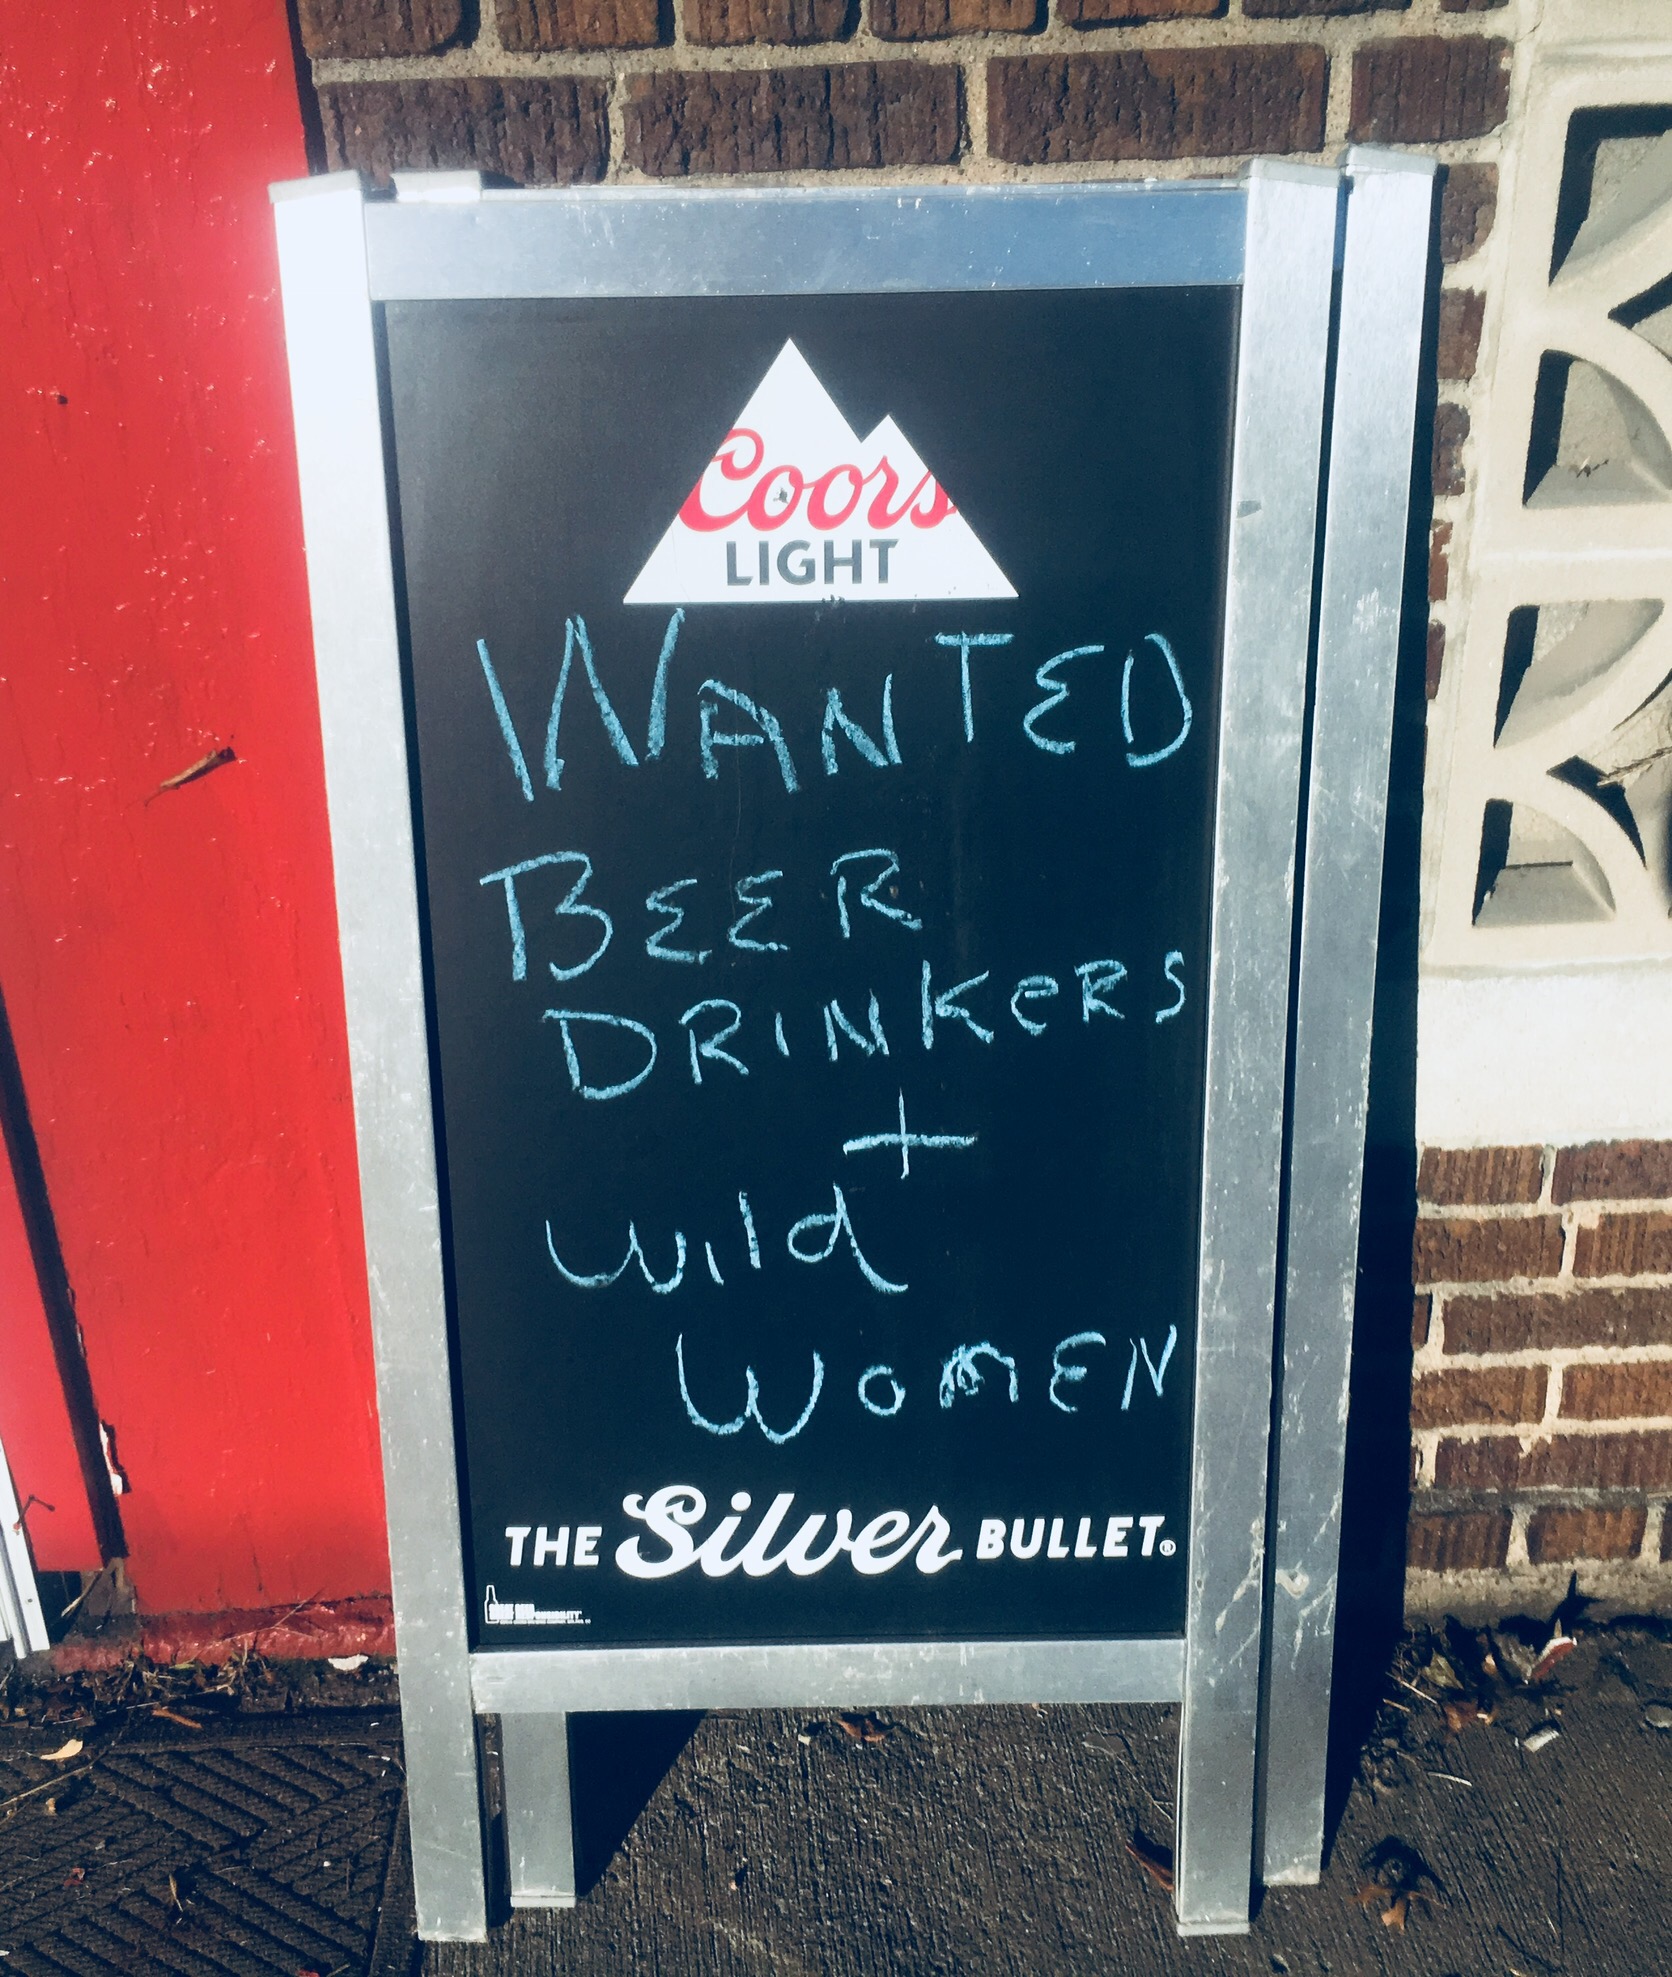 Coors
LIGHT
WANTED
BEER
DRINKeRS
+
wild
WOMEN
THE Silver BULLET®